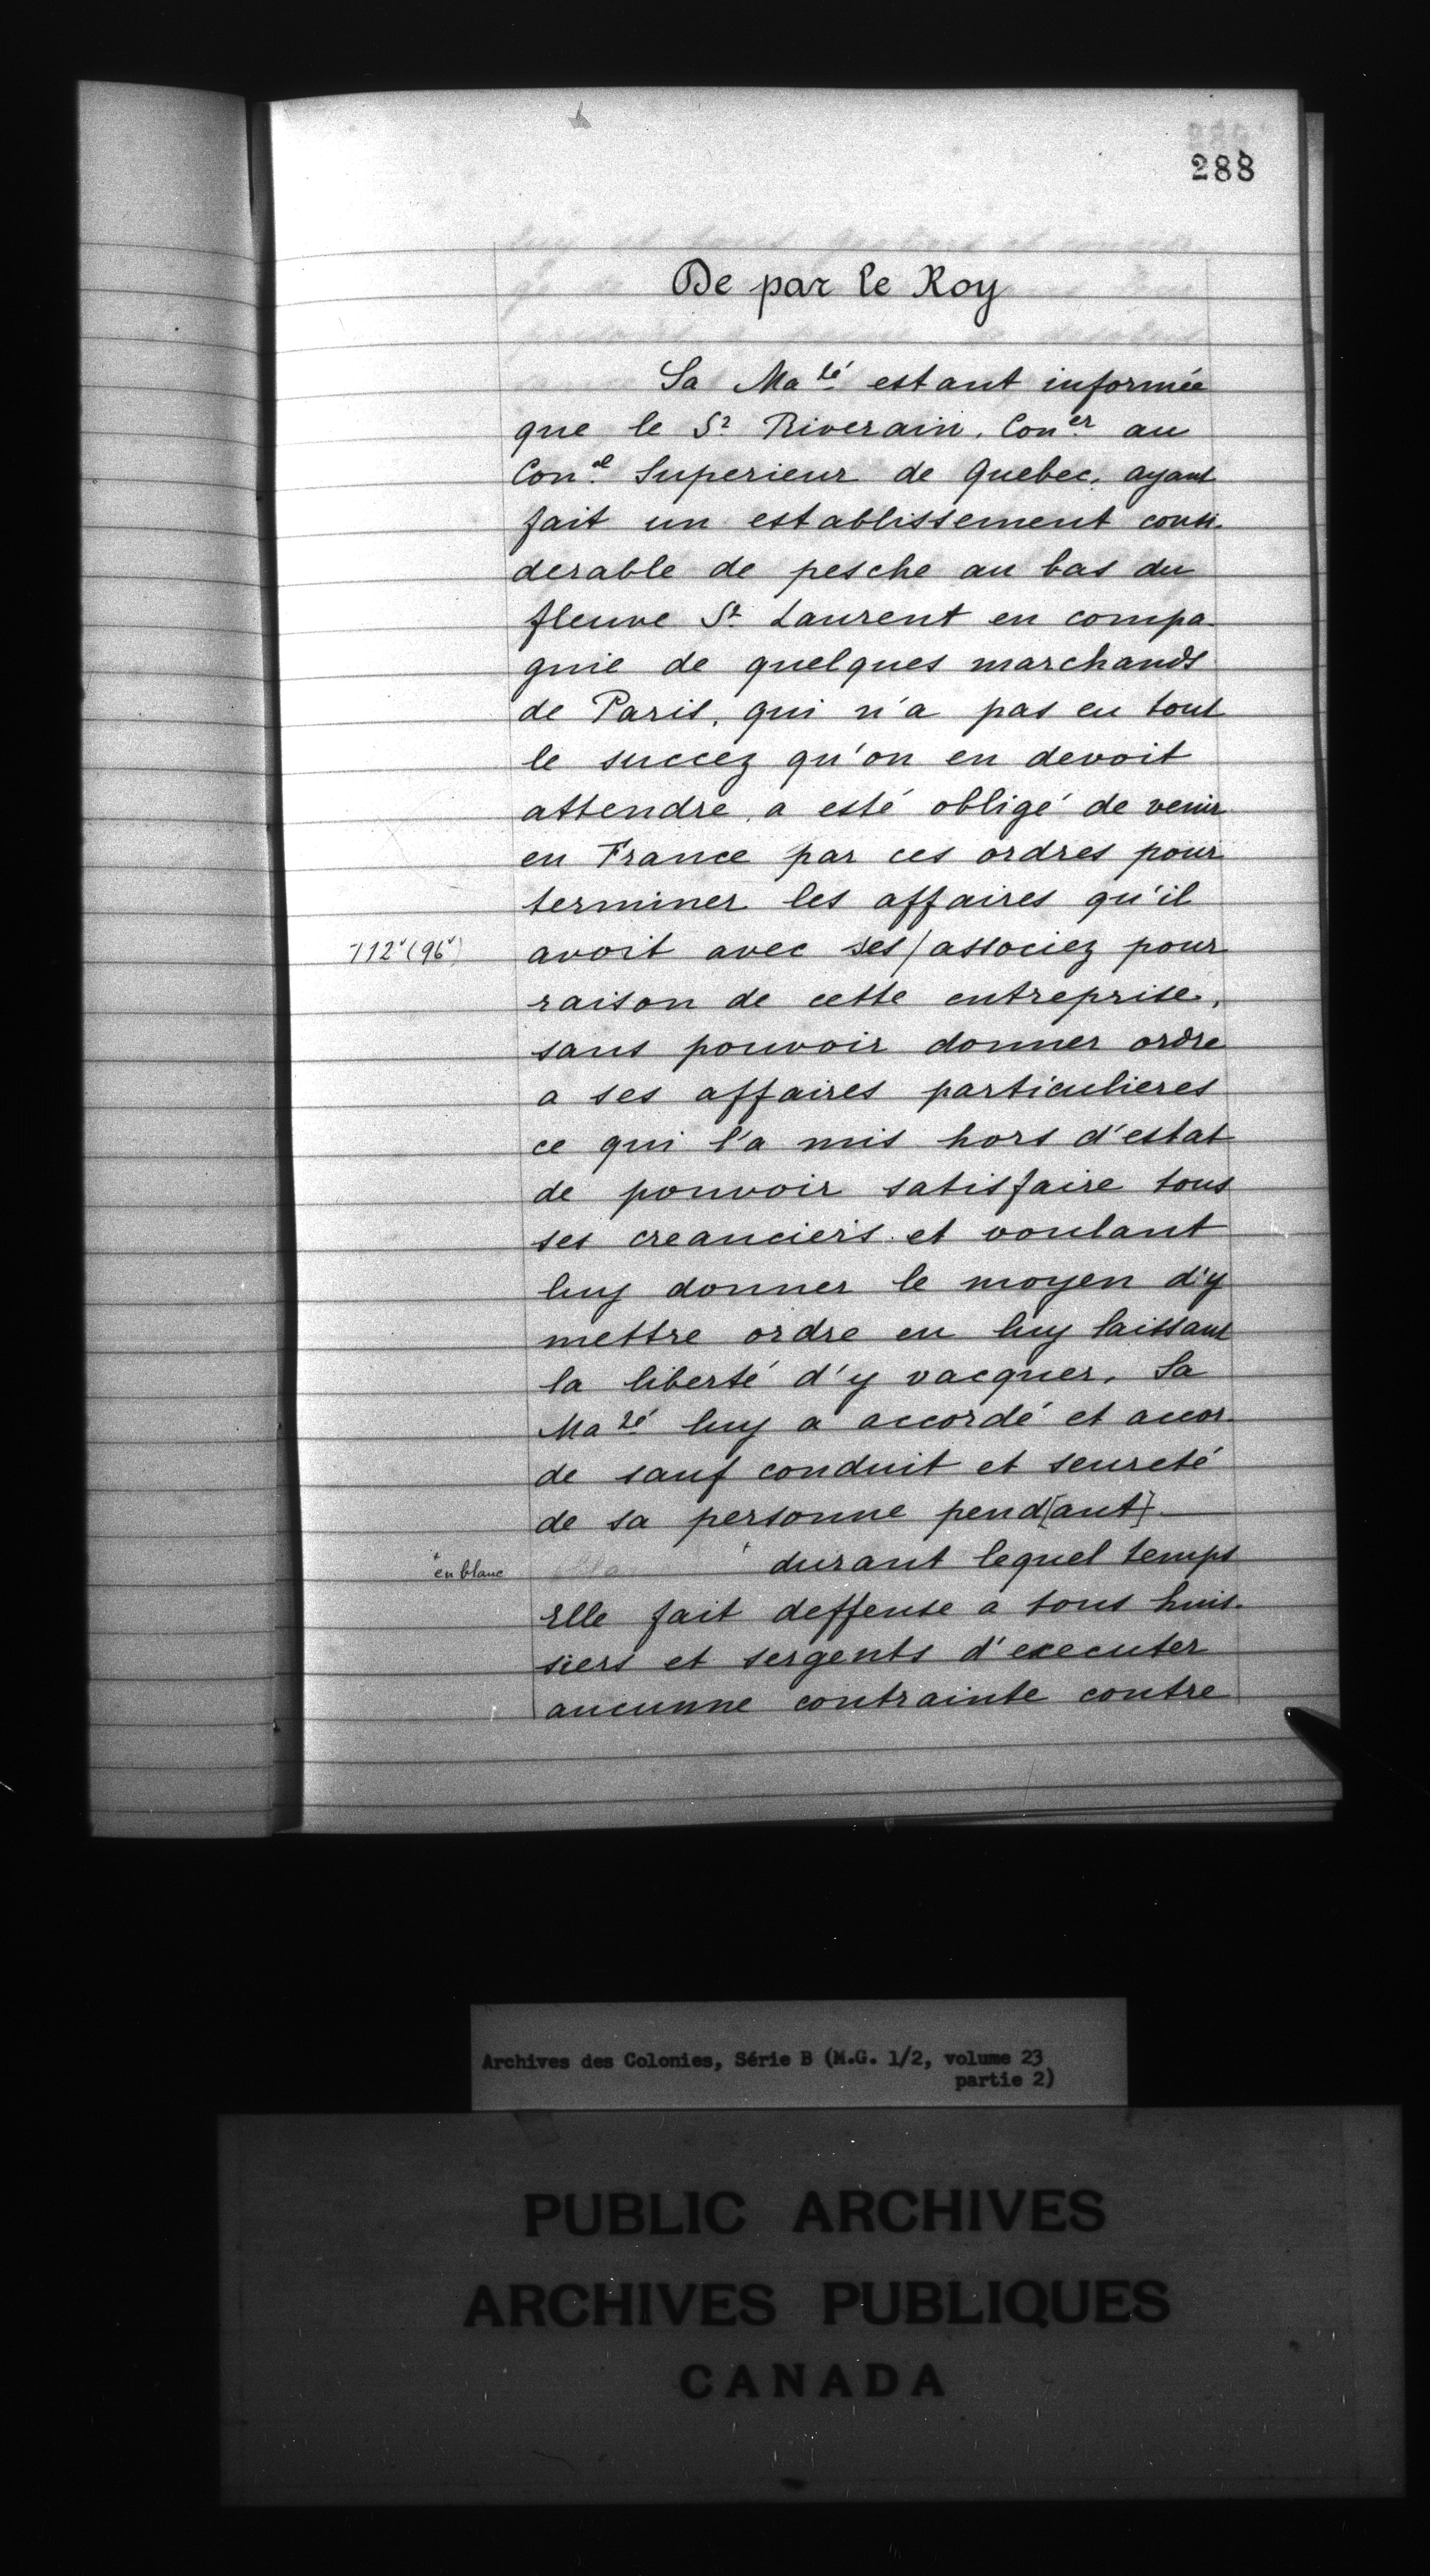 288
De par le Roy
Sa Ma.té estant informée
que le Sr Riverain, Con.er au
Con.el Superieur de Quebec, ayant
fait un establissement consi-
derable de pesche au bas du
fleuve St Laurent en compa-
gnie de quelques marchands
de Paris, qui n'a pas eu tout
le succez qu'on en devoit
attendre, a esté obligé de venir
en France par ces ordres pour
terminer les affaires qu'il
112v (96v) avoit avec ses/associez pour
raison de cette entreprise,
sans pouvoir donner ordre
a ses affaires particulieres
ce qui l'a mis hors d'estat
de pouvoir satisfaire tous
ses creanciers et voulant
luy donner le moyen d'y
mettre ordre en luy laissant
la liberté d'y vacquer, Sa
Ma.té luy a accordé et accor-
de sauf conduit et seureté
de sa personne pend[ant]
+ en blanc + durant lequel temps
Elle fait deffense a tous huis-
siers et sergents d'executer
aucunne contrainte contre
Archives des Colonies, Série B (M.G. 1/2, volume 23
partie 2)
PUBLIC ARCHIVES
ARCHIVES PUBLIQUES
CANADA